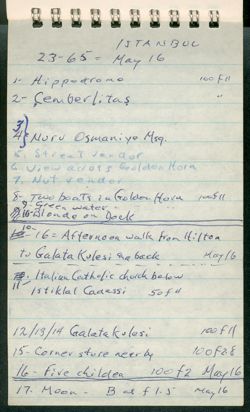 ISTANBUL
23-65 = May 16
1- Hippodromo 100 f11
2- Çemberlitaş "
3
4 Nuru Osmaniye Msq.
5. Street vendor
6. View across Golden Horn
7. Nut vendor
8- Two boats in Golden Horn 100 f11
9- Green water -
10- Blonde on Dock
16 = Afternoon walk from Hilton
to Galata Kulesi and back May 16
11. Italian Catholic church below
Istiklal Caddesi 50 f11
12/13/14 Galata Kulesi 100 f11
15- Corner store nearby 100 f 2.8
16- Five children 100 f2 May 16
17. Moon - B at f 1.5 May 16